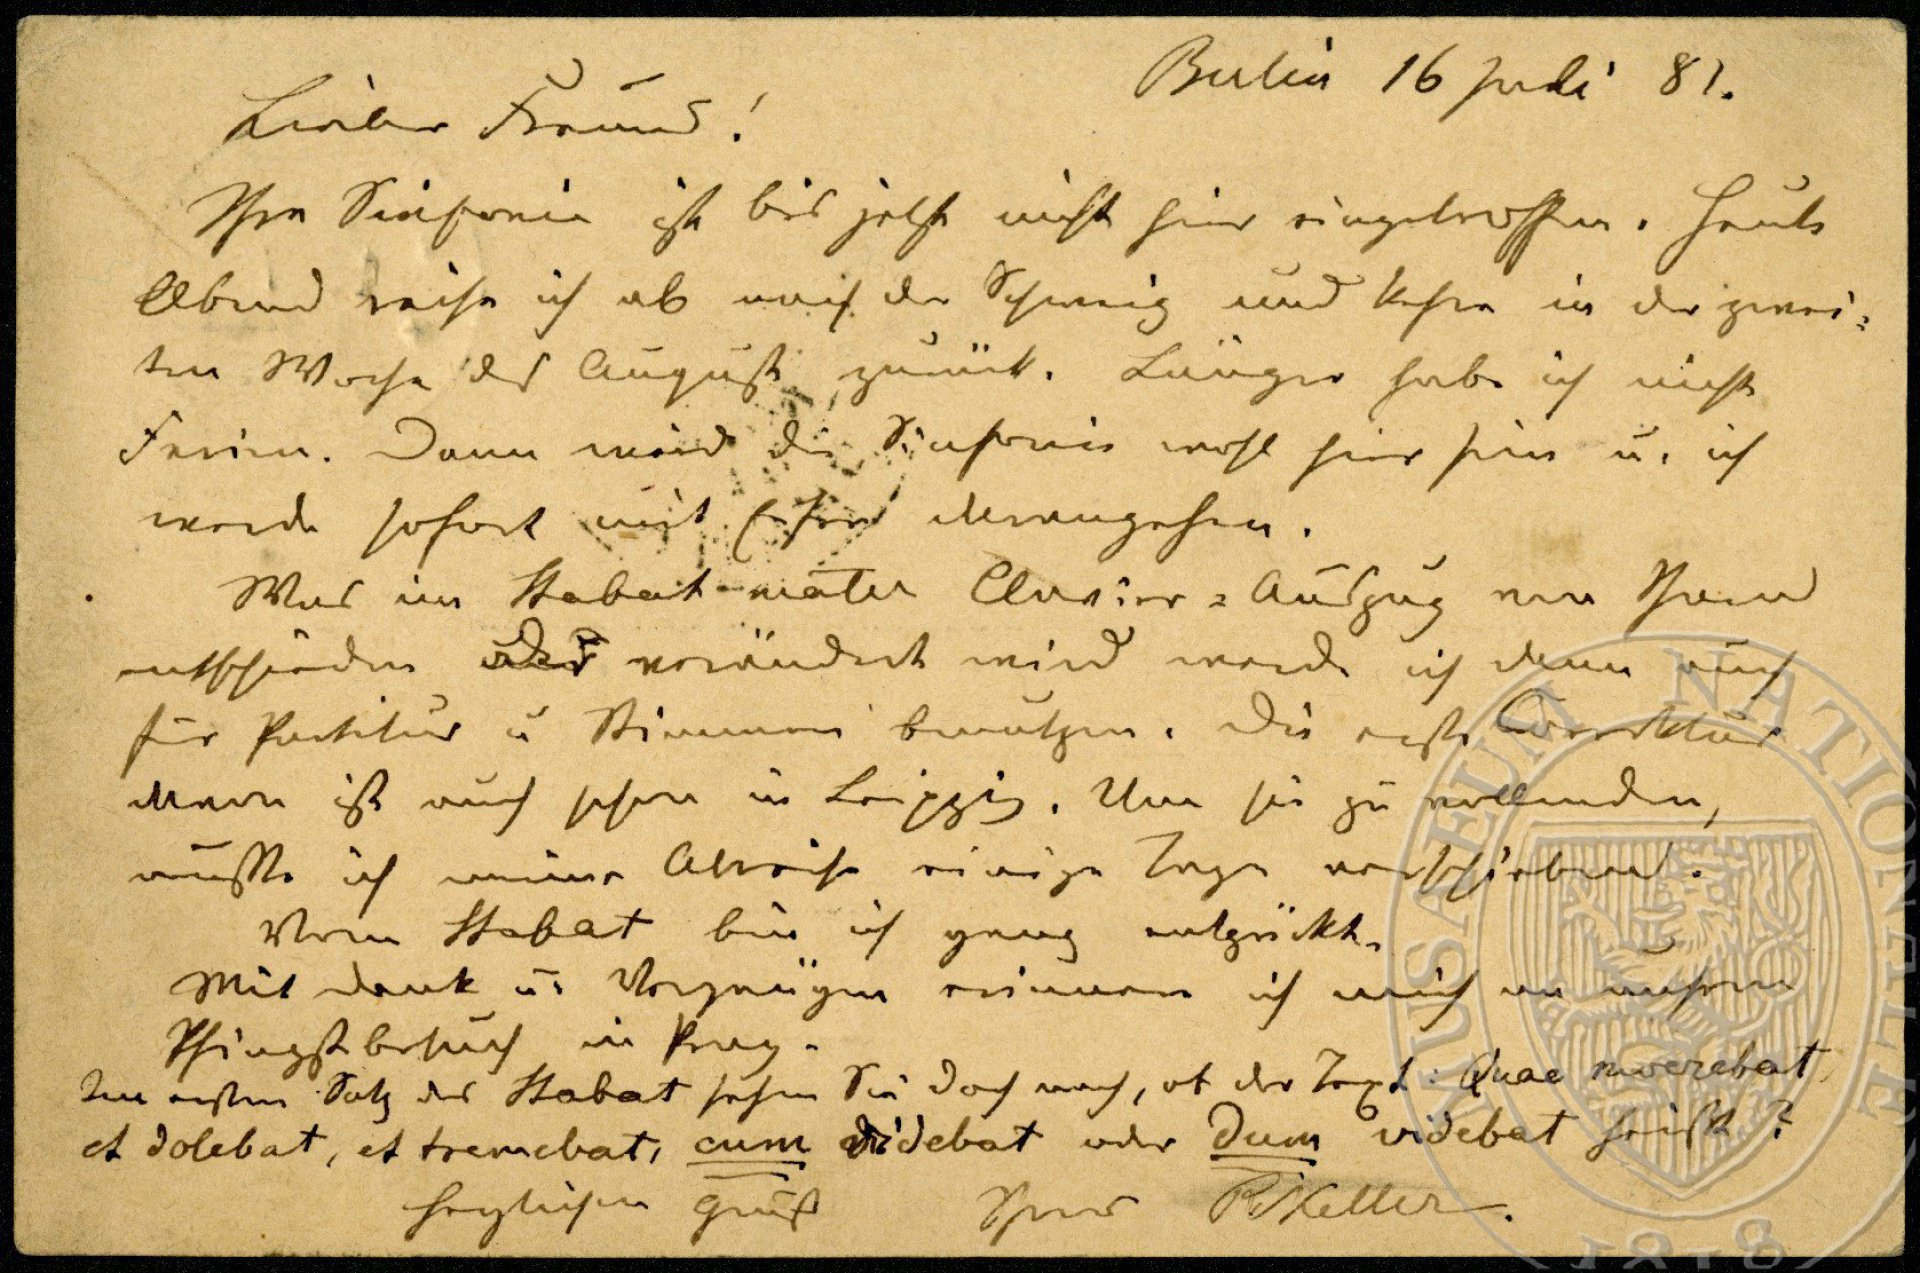 Berlin 16 Juli 81.
Lieber Freund!
Ihre Sinfonie ist bis jetzt nicht hier eingetroffen. Heute
Abend reise ich ab nach der Schweiz und kehre in der zwei-
ten Woche des August zurück. Länger habe ich nicht
Ferien. Dann wird die Sinfonie wohl hier sein u. ich
werde sofort mit darangehen.
Was im Stabat mater Clavier-Auszug von Ihnen
entschieden oder verändert wird werde ich dann auch
für Partitur u Stimmen benutzen. Die erste Correktur
davon ist auch schon in Leipzig. Um sie zu vollenden,
mußte ich meine Abreise einige Tage verschieben.
Vom Stabat bin ich ganz entzückt.
Mit Dank u. Vergnügen erinnere ich mich an unsern
Pfingstbesuch in Prag.
Im ersten Satz des Stabat sehen Sie doch nach, ob der Text: Quae moerebat
et dolebat, et tremebat, cum videbat oder dum videbat heißt?
Herzlichen Gruß Ihres R Keller.
MUSAEUM NATIONALE
1818